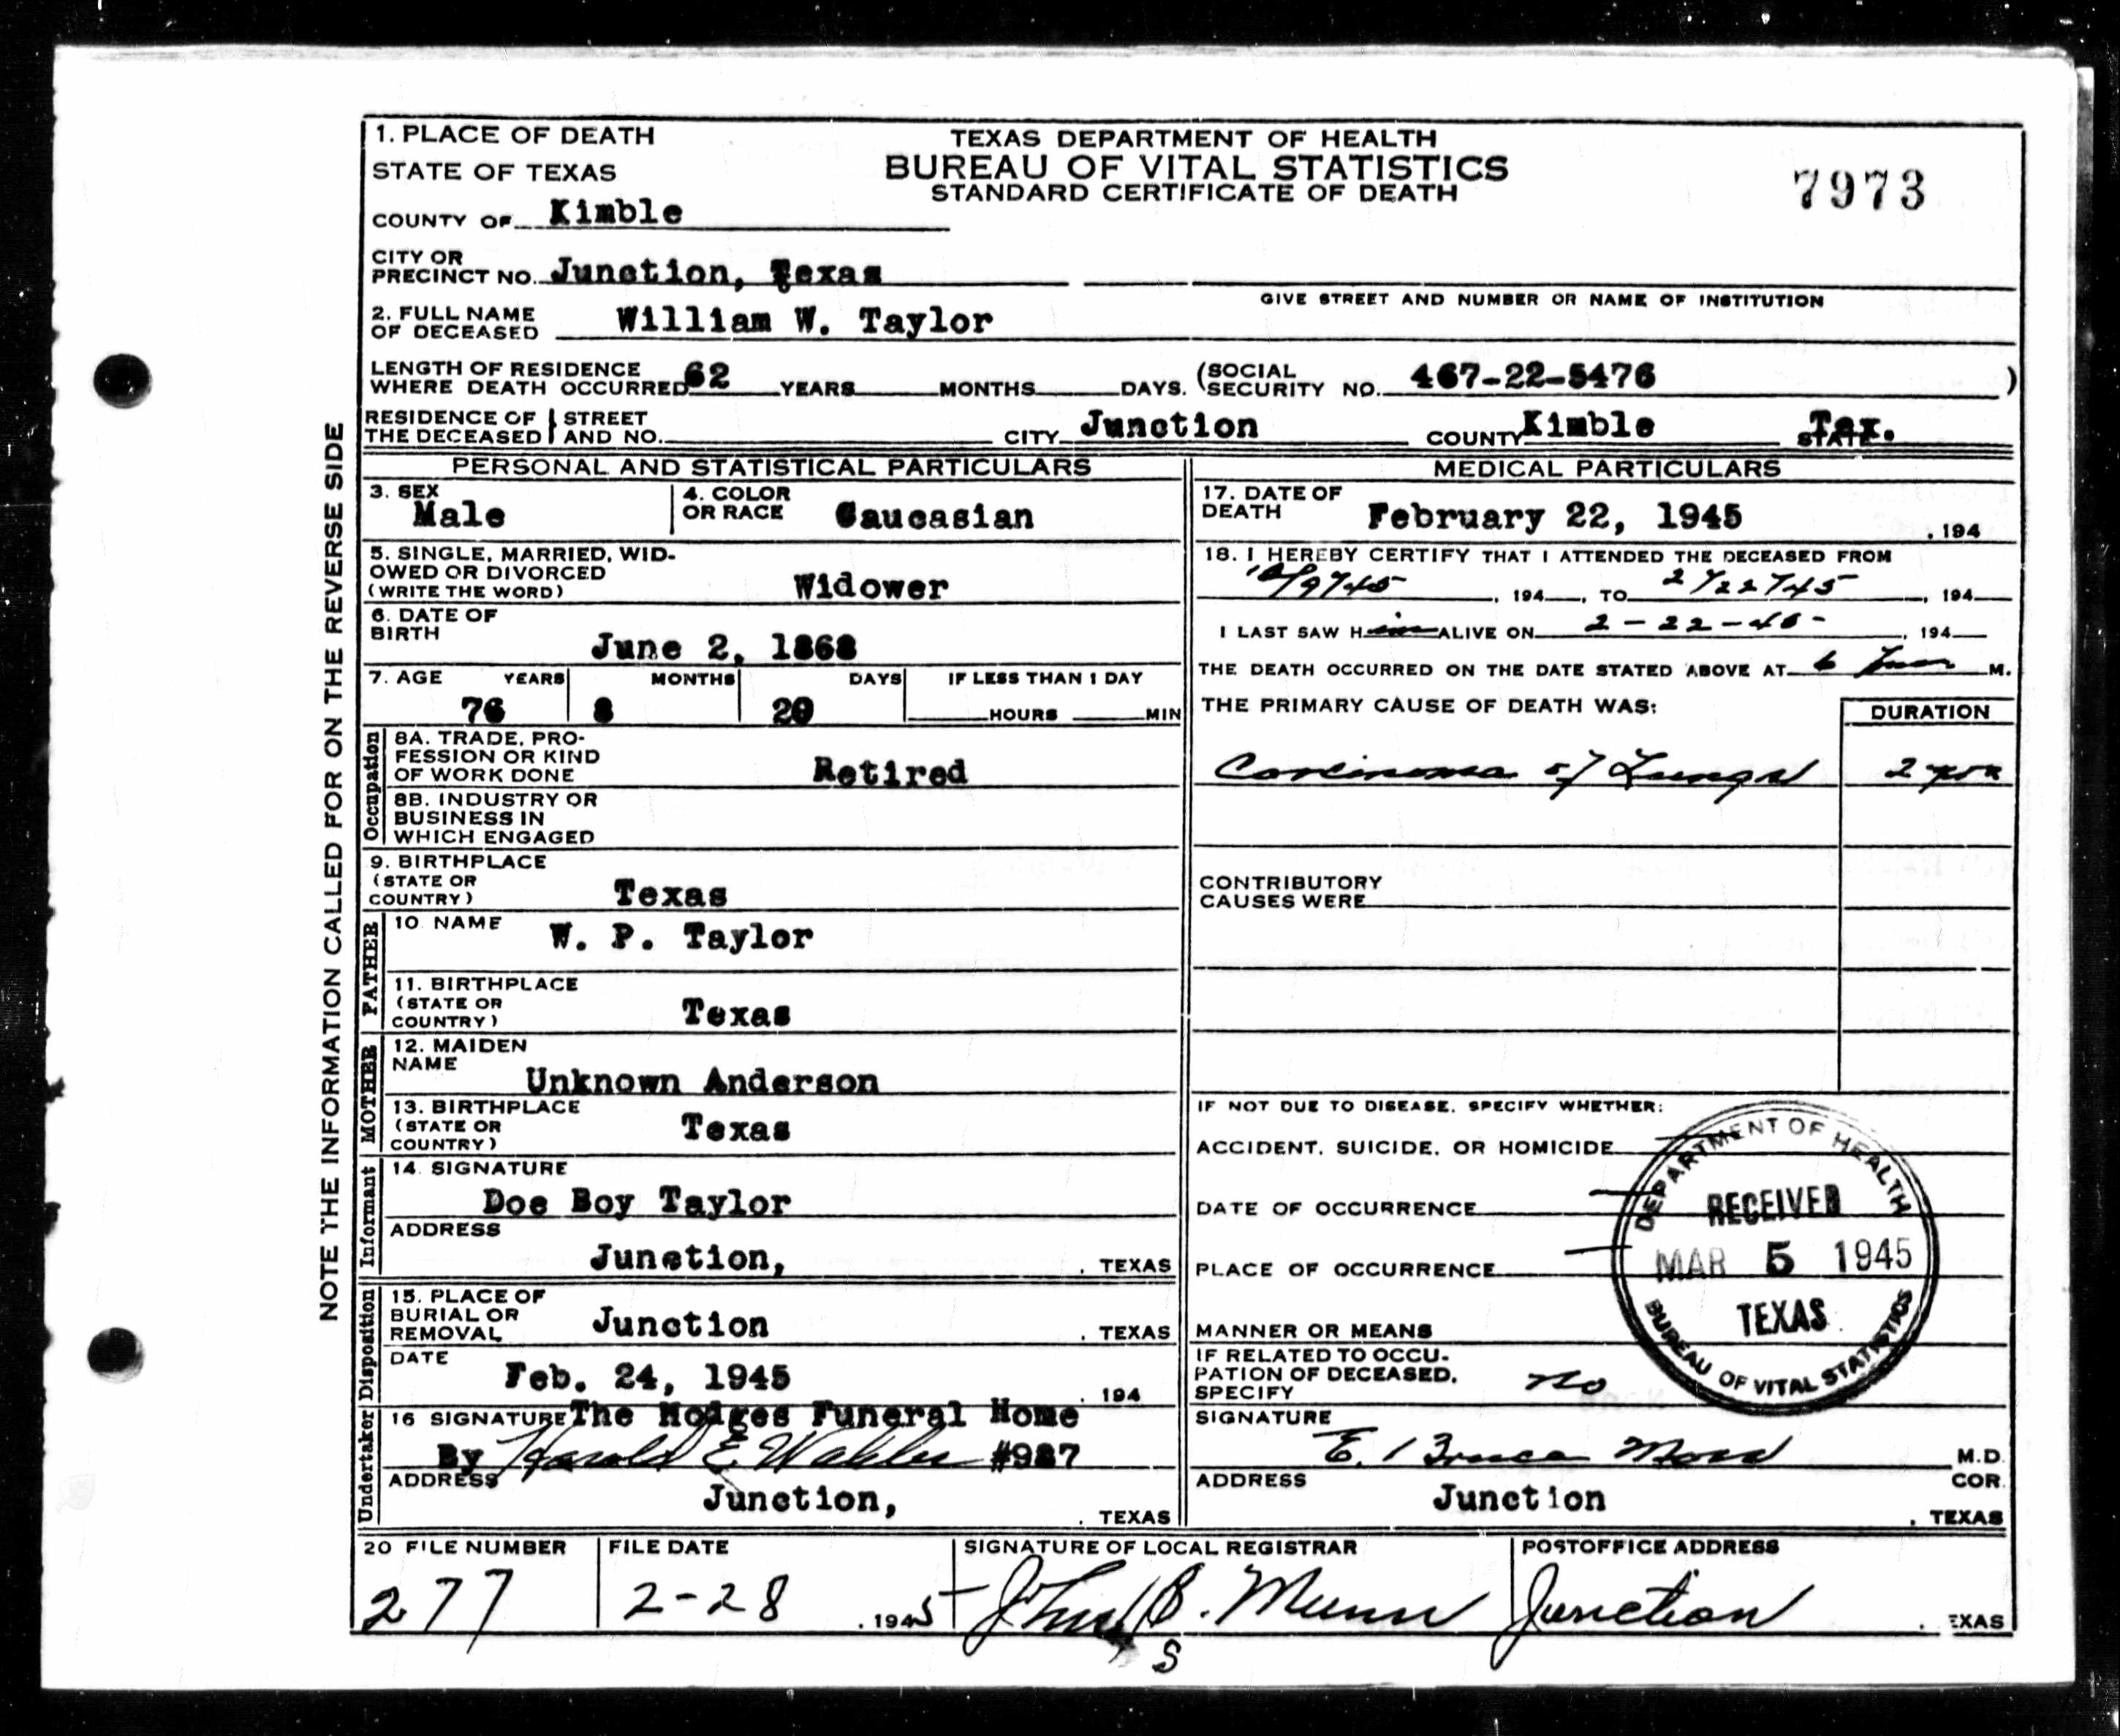 1. PLACE OF DEATH
STATE OF TEXAS
COUNTY OF Kimble
TEXAS DEPARTMENT OF HEALTH
BUREAU OF VITAL STATISTICS
STANDARD CERTIFICATE OF DEATH
7973
CITY OR
PRECINCT NO. Junction, Texas
GIVE STREET AND NUMBER OR NAME OF INSTITUTION
2. FULL NAME
OF DECEASED William W. Taylor
LENGTH OF RESIDENCE
WHERE DEATH OCCURRED 62 YEARS MONTHS DAYS. (SOCIAL
SECURITY NO. 467-22-5476 )
RESIDENCE OF THE DECEASED STREET AND NO. CITY Junction COUNTY Kimble STATE Tex.
PERSONAL AND STATISTICAL PARTICULARS
3. SEX
Male
4. COLOR
OR RACE Caucasian
5. SINGLE, MARRIED, WID-
OWED OR DIVORCED
(WRITE THE WORD) Widower
6. DATE OF
BIRTH June 2, 1868
7. AGE YEARS MONTHS DAYS IF LESS THAN 1 DAY
76 8 20 HOURS MIN
Occupation
8A. TRADE, PRO-
FESSION OR KIND
OF WORK DONE Retired
8B. INDUSTRY OR
BUSINESS IN
WHICH ENGAGED
9. BIRTHPLACE
(STATE OR
COUNTRY) Texas
FATHER
10 NAME W. P. Taylor
11. BIRTHPLACE
(STATE OR
COUNTRY) Texas
MOTHER
12. MAIDEN
NAME Unknown Anderson
13. BIRTHPLACE
(STATE OR
COUNTRY) Texas
Informant
14. SIGNATURE
Doe Boy Taylor
ADDRESS
Junction, . TEXAS
Disposition
15. PLACE OF
BURIAL OR
REMOVAL Junction . TEXAS
DATE
Feb. 24, 1945 . 194
Undertaker
16 SIGNATURE The Hodges Funeral Home
By Harold E #987
ADDRESS
Junction, . TEXAS
MEDICAL PARTICULARS
17. DATE OF
DEATH February 22, 1945 , 194
18. I HEREBY CERTIFY THAT I ATTENDED THE DECEASED FROM
, 194 , TO 2/22/45 , 194
I LAST SAW H im ALIVE ON 2-22-45- , 194
THE DEATH OCCURRED ON THE DATE STATED ABOVE AT 6 M.
THE PRIMARY CAUSE OF DEATH WAS: DURATION
Carcinoma of Lungs 2 yrs
CONTRIBUTORY
CAUSES WERE
IF NOT DUE TO DISEASE, SPECIFY WHETHER:
ACCIDENT, SUICIDE, OR HOMICIDE
DATE OF OCCURRENCE
PLACE OF OCCURRENCE
MANNER OR MEANS
IF RELATED TO OCCU-
PATION OF DECEASED,
SPECIFY no
DEPARTMENT OF HEALTH
RECEIVED
MAR 5 1945
TEXAS
BUREAU OF VITAL STATISTICS
SIGNATURE
E. Bruce Moss M.D.
ADDRESS COR.
Junction . TEXAS
20 FILE NUMBER
277
FILE DATE
2-28 , 1945
SIGNATURE OF LOCAL REGISTRAR
John B. Munn
POSTOFFICE ADDRESS
Junction . EXAS
S
NOTE THE INFORMATION CALLED FOR ON THE REVERSE SIDE